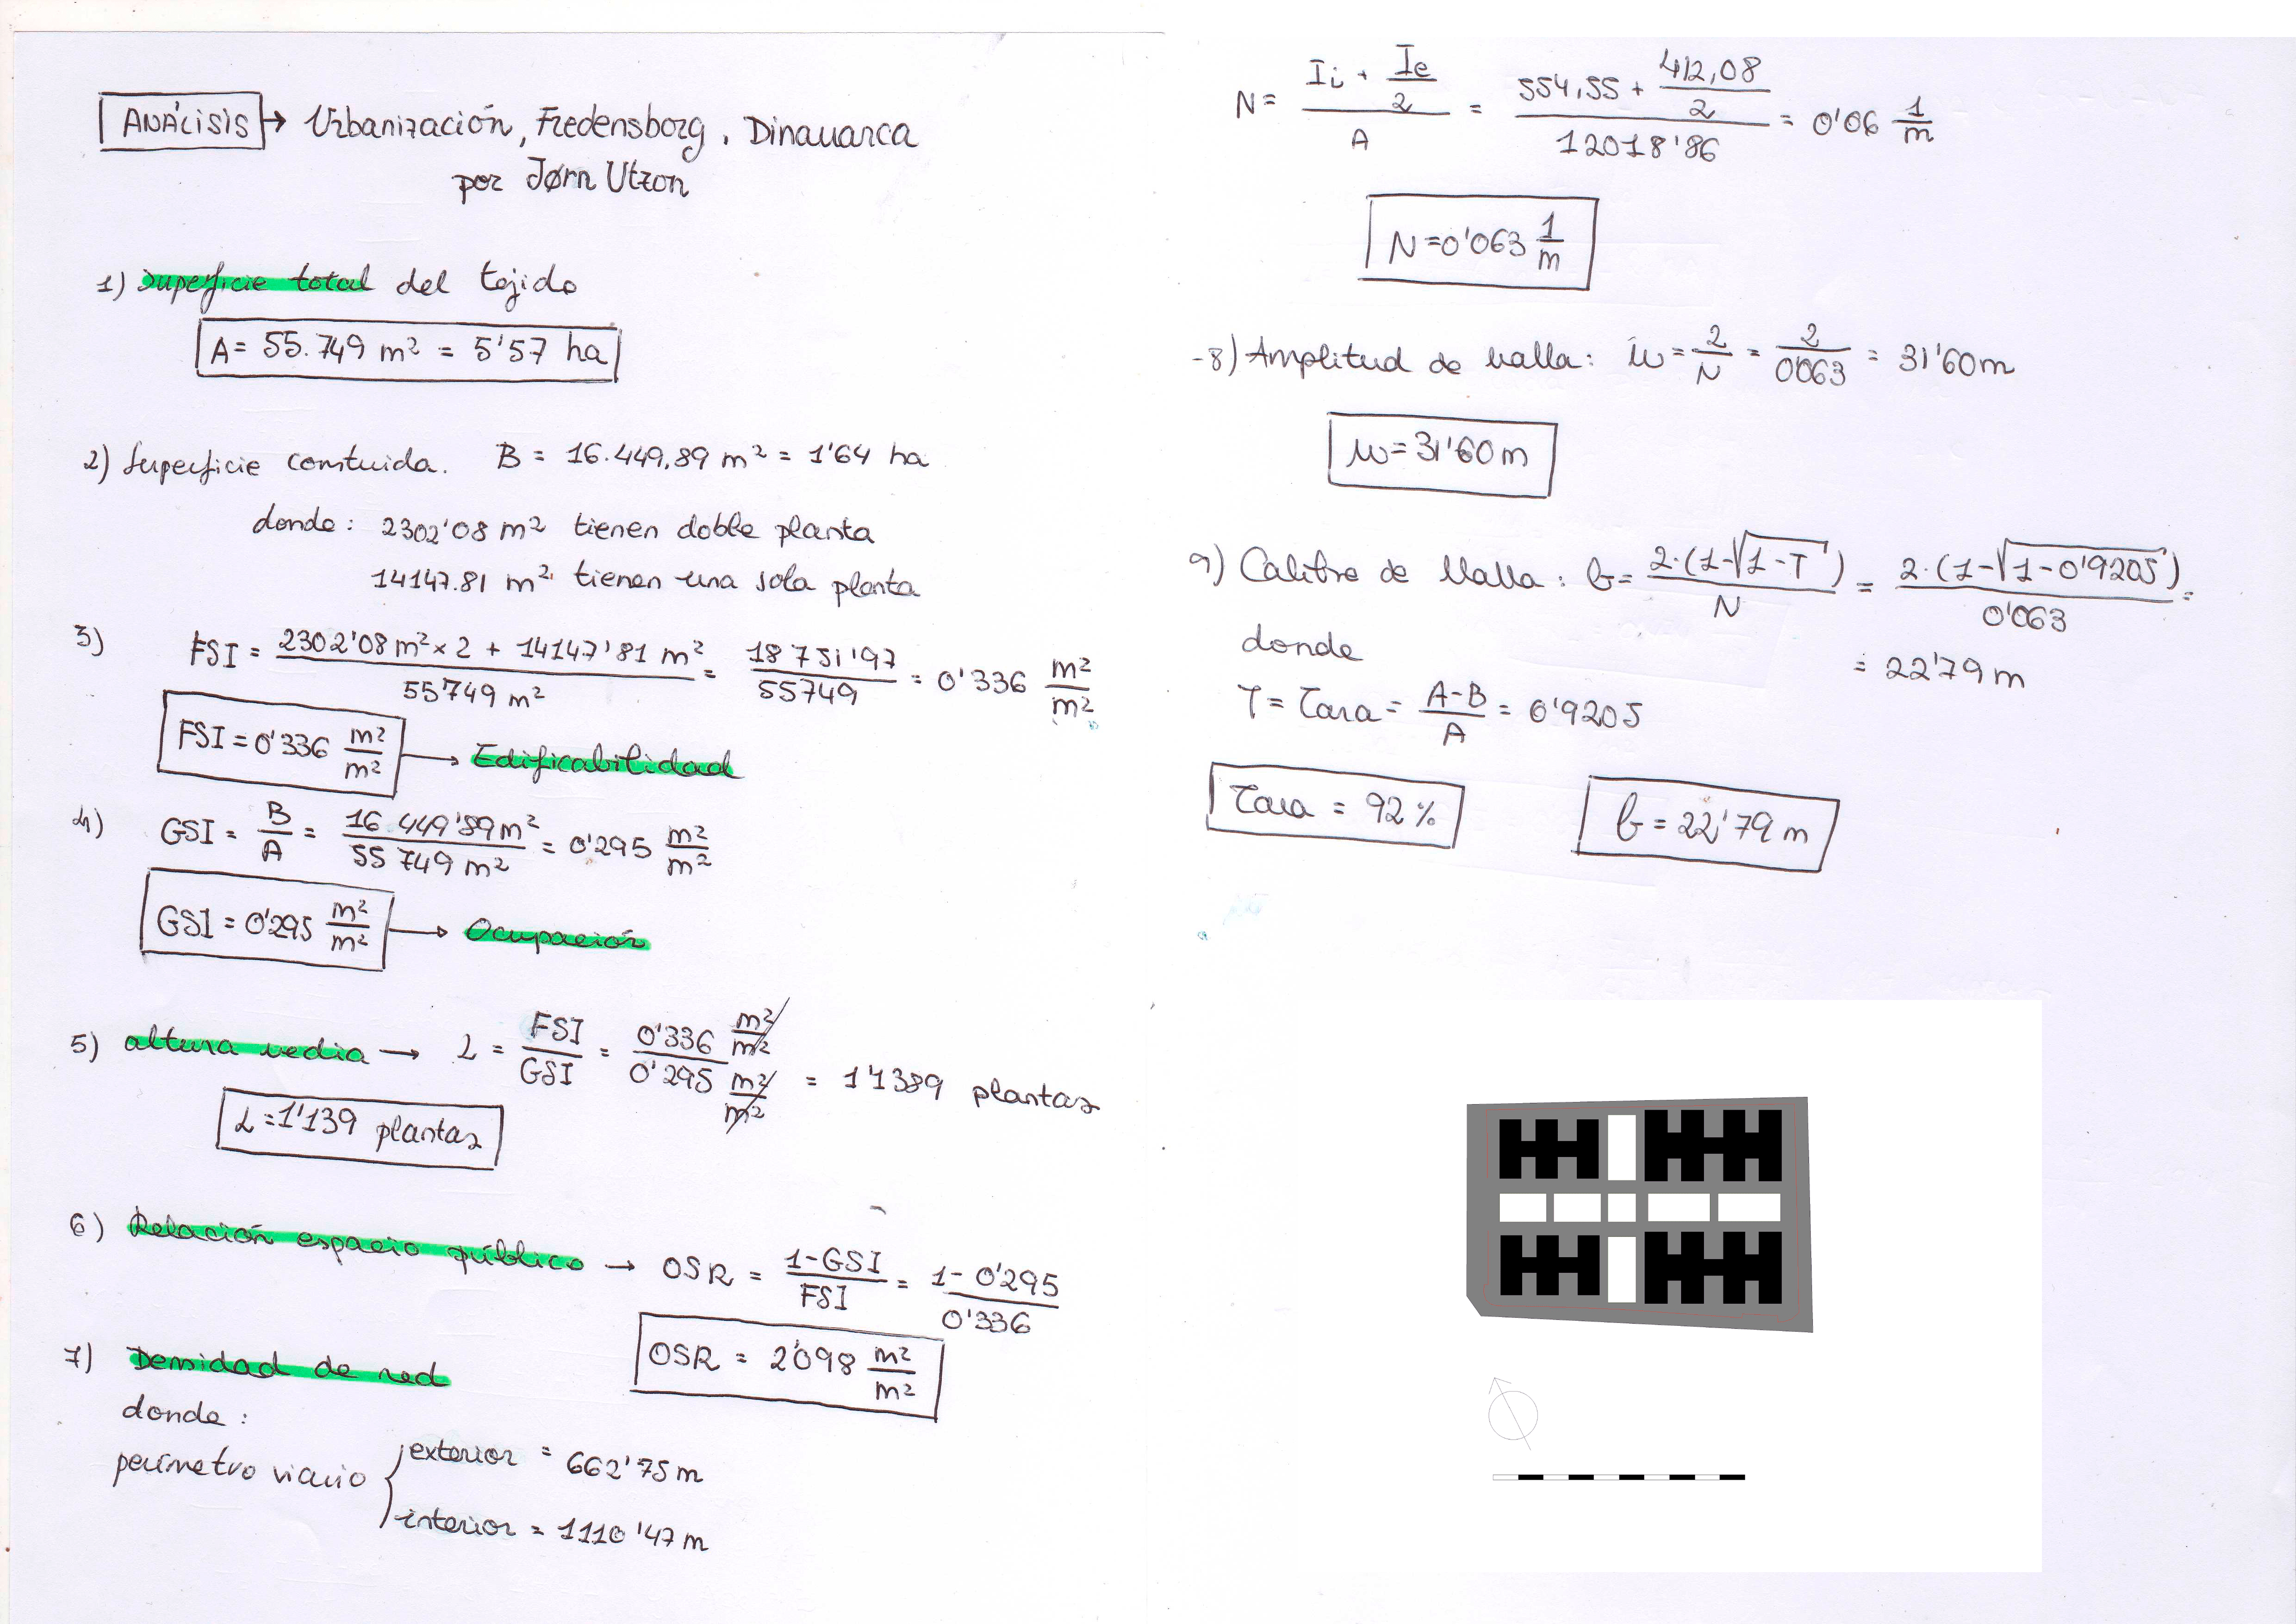 ANÁLISIS → Urbanización, Fredensborg, Dinamarca
por Jørn Utzon
1) Superficie total del tejido
A = 55.749 m² = 5'57 ha
2) Superficie construida. B = 16.449,89 m² = 1'64 ha
donde: 2302'08 m² tienen doble planta
14147.81 m² tienen una sola planta
3) FSI = (2302'08 m² × 2 + 14147'81 m²) / 55749 m² = 18751'97 / 55749 = 0'336 m²/m²
FSI = 0'336 m²/m² → Edificabilidad
4) GSI = B/A = 16 449'89 m² / 55 749 m² = 0'295 m²/m²
GSI = 0'295 m²/m² → Ocupación
5) altura media → L = FSI/GSI = 0'336 m²/m² / 0'295 m²/m² = 1'1389 plantas
L = 1'139 plantas
6) Relación espacio público → OSR = (1-GSI)/FSI = (1-0'295)/0'336
OSR = 2'098 m²/m²
7) Densidad de red
donde:
perímetro viario { exterior = 662'75 m
interior = 1110'47 m
N = (Ii + Ie/2) / A = (554,55 + 412,08/2) / 12018'86 = 0'06 1/m
N = 0'063 1/m
-8) Amplitud de malla: w = 2/N = 2/0'063 = 31'60 m
w = 31'60 m
9) Calibre de Malla: b = 2·(1-√(1-T)) / N = 2·(1-√(1-0'9205)) / 0'063 =
= 22'79 m
donde
T = Tara = (A-B)/A = 0'9205
Tara = 92 %
b = 22'79 m